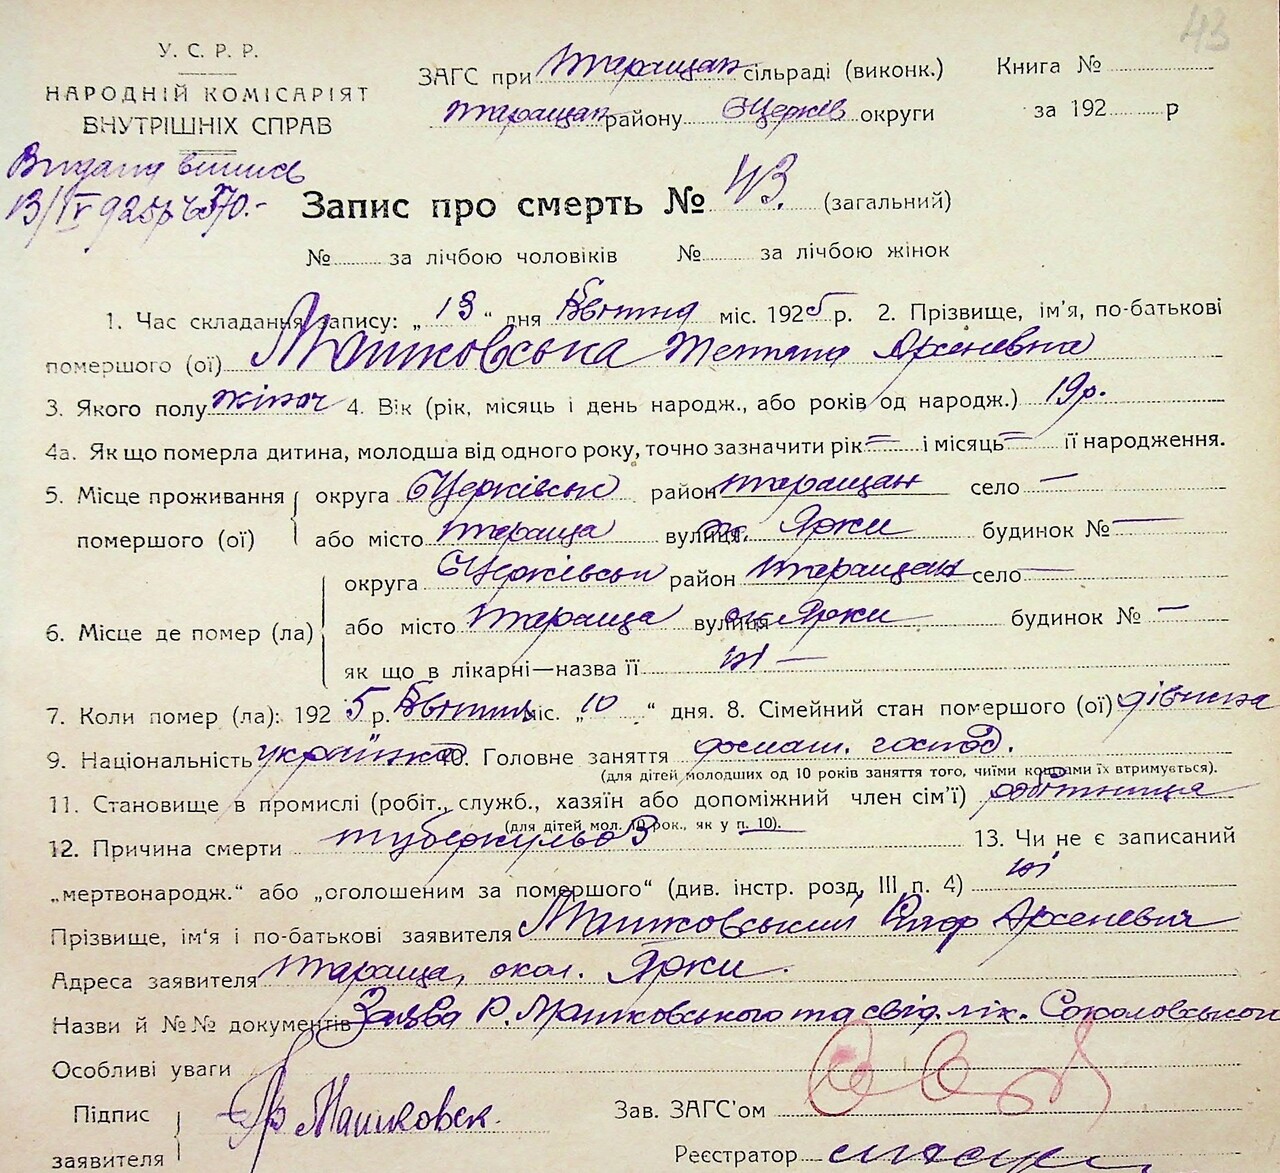 43
У. С. Р. Р.
НАРОДНІЙ КОМІСАРІЯТ
ВНУТРІШНІХ СПРАВ
ЗАГС при Таращан сільраді (виконк.)
Книга №
Таращан району Бцерків округи
за 192 р
Видана випись
13/IV 925р
Запис про смерть № 43. (загальний)
№ за лічбою чоловіків № за лічбою жінок
1. Час складання запису: „13“ дня Квітня міс. 1925 р. 2. Прізвище, ім'я, по-батькові
помершого (ої) Машковська Тетяна Арсенєвна
3. Якого полу жіноч 4. Вік (рік, місяць і день народж., або років од народж.) 19р.
4а. Як що померла дитина, молодша від одного року, точно зазначити рік = і місяць = її народження.
5. Місце проживання помершого (ої)
округа Бцерківськ район Таращан село —
або місто Тараща вулиця Ярки будинок № —
6. Місце де помер (ла)
округа Бцерківськ район Таращан село —
або місто Тараща вулиця Ярки будинок № —
як що в лікарні—назва її ні —
7. Коли помер (ла): 1925 р. Квітня міс. „10“ дня. 8. Сімейний стан помершого (ої) дівиця
9. Національність українка 10. Головне заняття домаш. господ.
(для дітей молодших од 10 років заняття того, чиїми коштами їх втримується).
11. Становище в промислі (робіт., служб., хазяїн або допоміжний член сім'ї) робітниця
(для дітей мол. 10 рок., як у п. 10).
12. Причина смерти туберкульоз 13. Чи не є записаний
„мертвонародж.“ або „оголошеним за помершого“ (див. інстр. розд. III п. 4) ні
Прізвище, ім'я і по-батькові заявителя Машковський Арсеневич
Адреса заявителя Тараща, окол. Ярки.
Назви й №№ документів Заява Машковського та свід. лік. Соколовського
Особливі уваги
Підпис
заявителя
Машковск.
Зав. ЗАГС'ом
Реєстратор